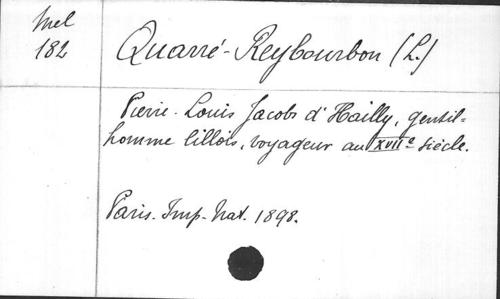 Mel
182
Quarré-Reybourbon (L.)
Pierre-Louis Jacobs d'Hailly, gentil=
homme lillois, voyageur au XVIIe siècle.
Paris. Imp. Nat. 1898.